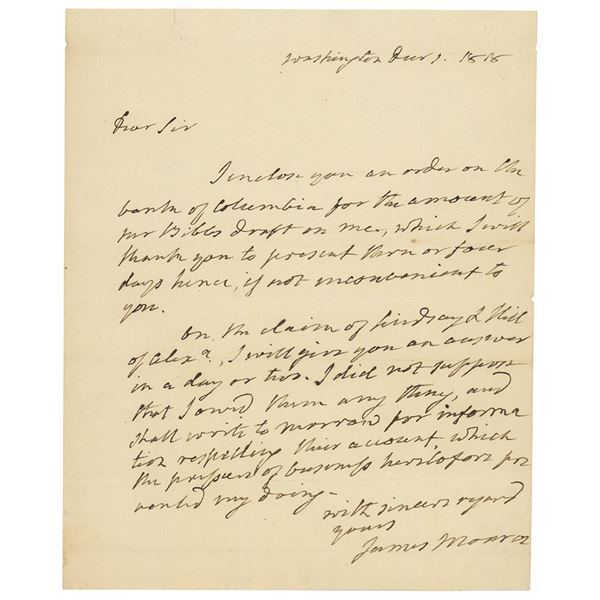 Washington Decr 1. 1818
Dear Sir
I enclose you an order on the
bank of Columbia for the amount of
Mr Bibbs draft on me, which I will
thank you to present three or four
days hence, if not inconvenient to
you.
On the claim of Lindsay & Hill
of Alexa., I will give you an answer
in a day or two. I did not suppose
that I owed them any thing, and
shall write to morrow for informa
tion respecting their account, which
the pressure of business heretofore pre
vented my doing-
with sincere regard
yours
James Monroe